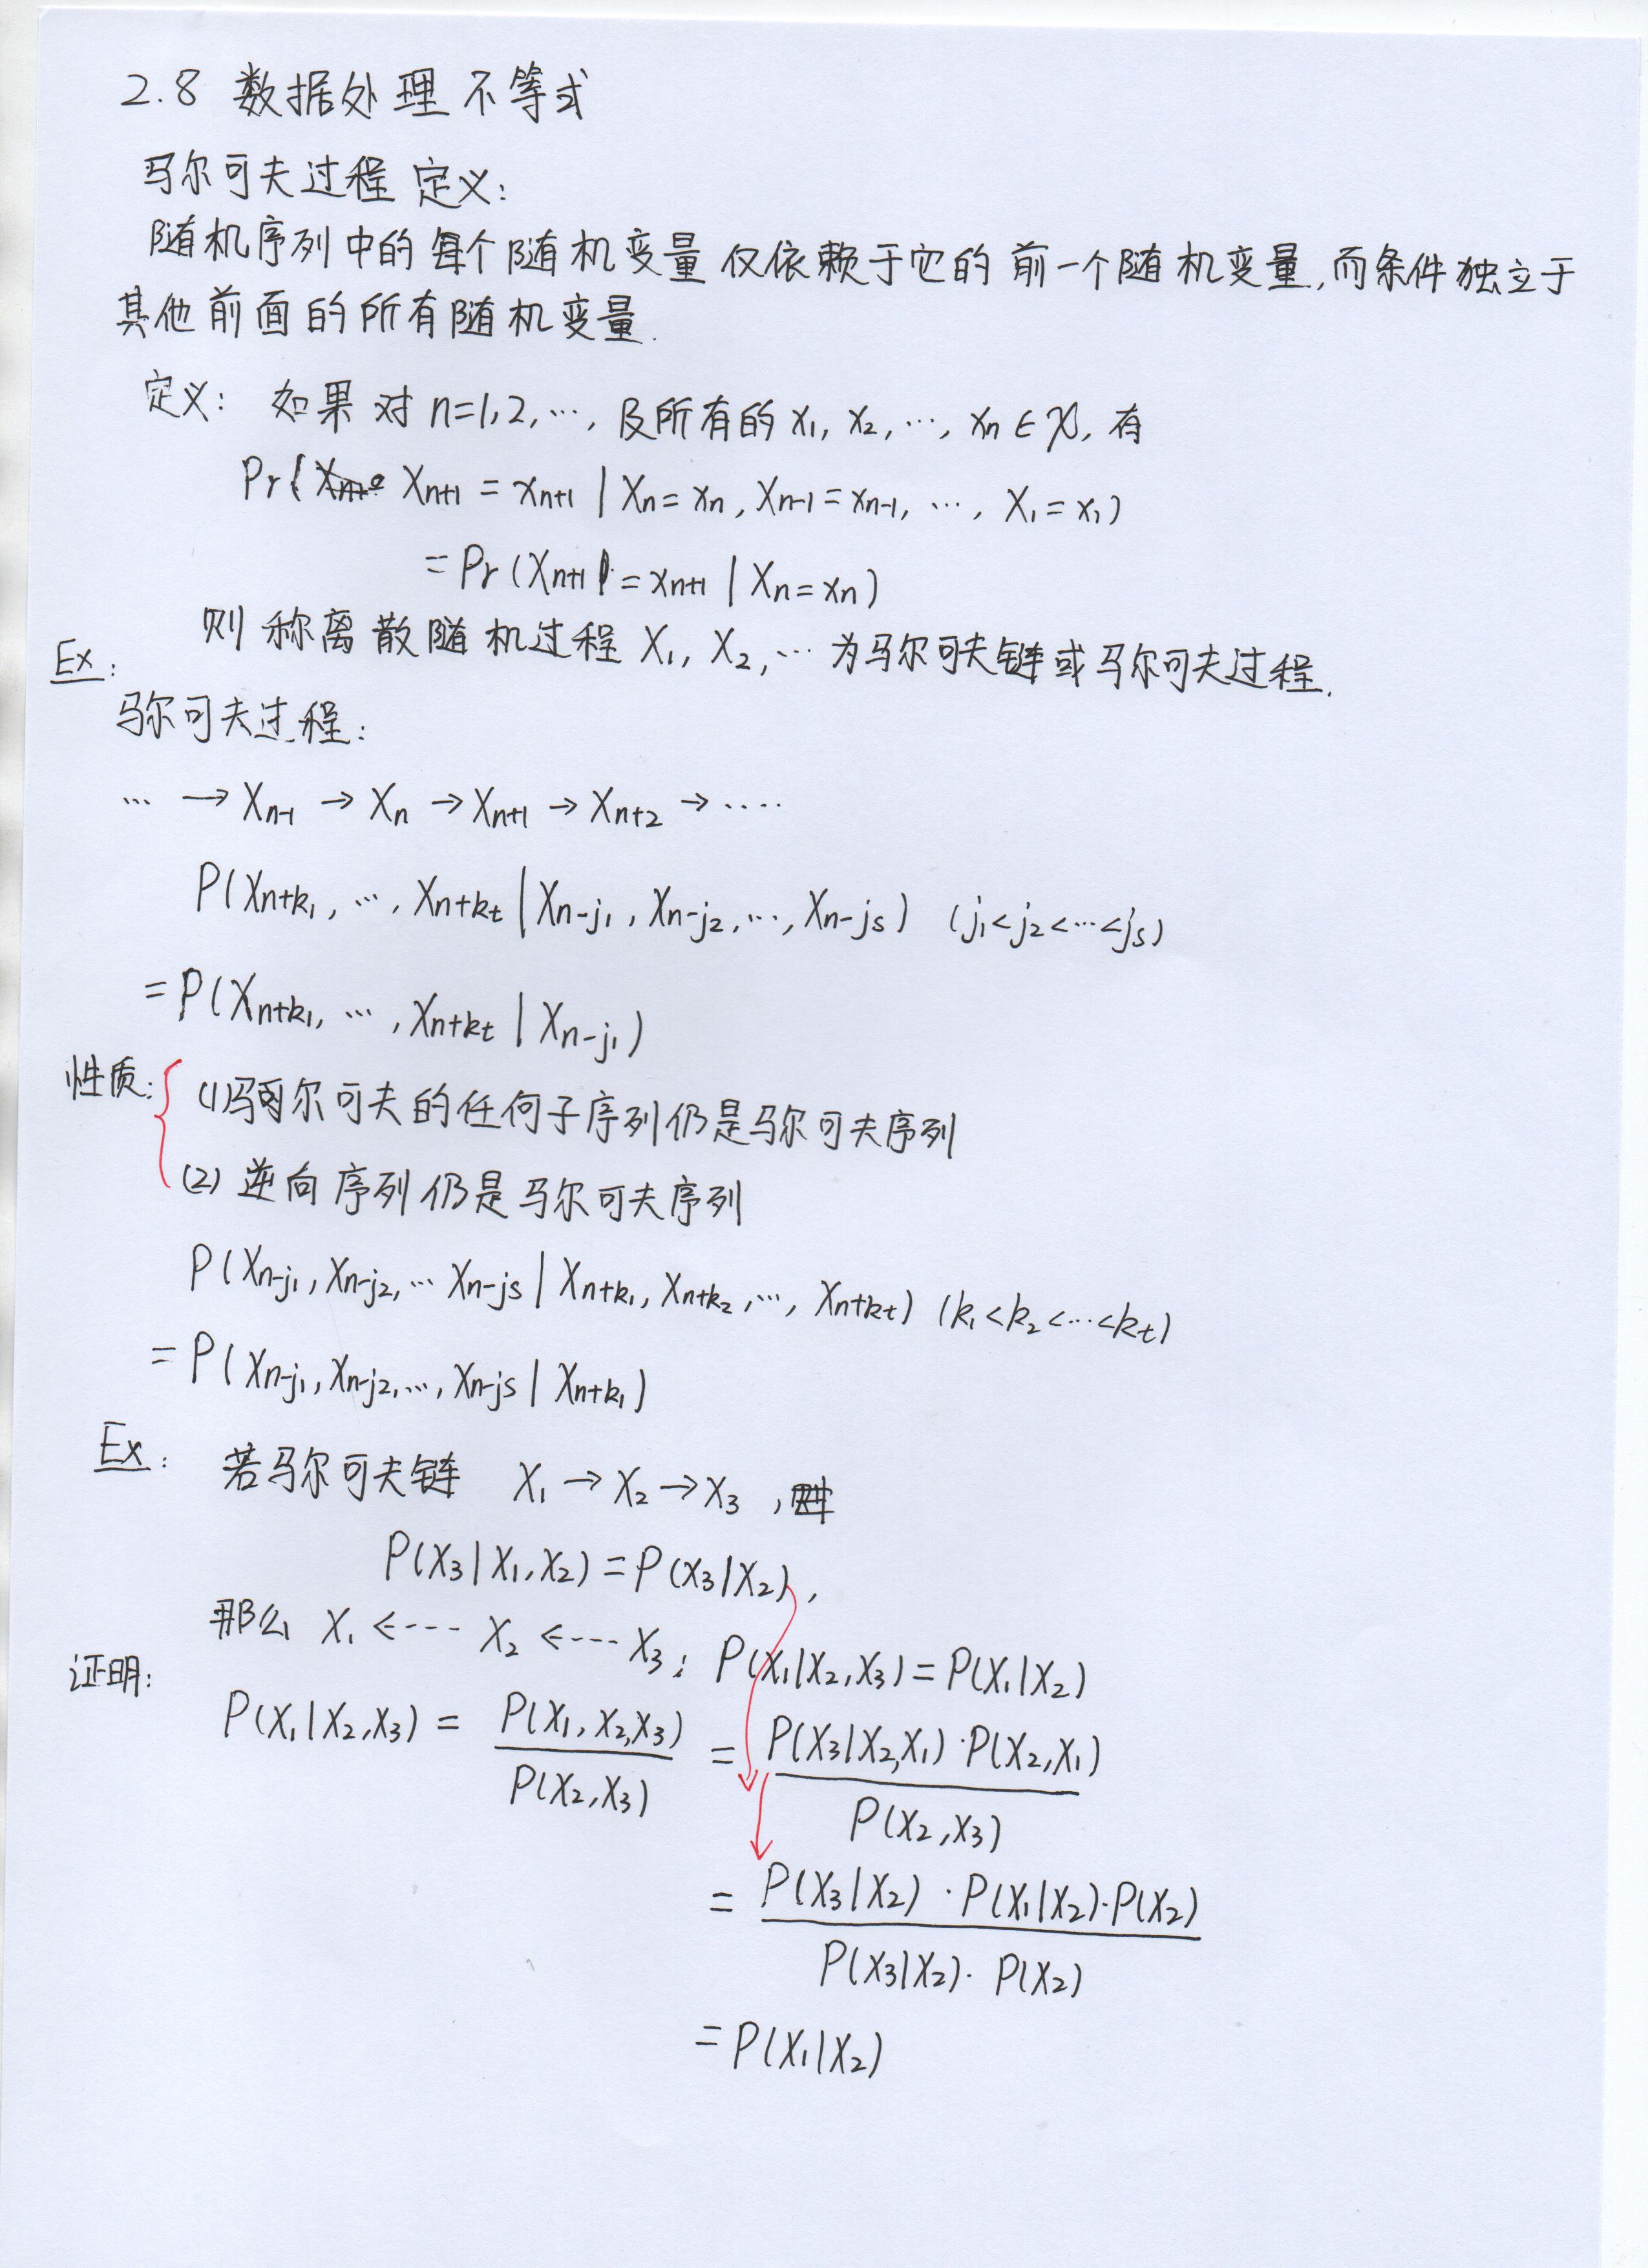 2.8 数据处理不等式
马尔可夫过程 定义:
随机序列中的每个随机变量仅依赖于它的前一个随机变量,而条件独立于
其他前面的所有随机变量.
定义: 如果对 n=1,2,…, 及所有的 x₁, x₂, …, xₙ ∈ 𝒳, 有
Pr( Xₙ₊₁ = xₙ₊₁ | Xₙ = xₙ, Xₙ₋₁ = xₙ₋₁, …, X₁ = x₁)
= Pr (Xₙ₊₁ = xₙ₊₁ | Xₙ = xₙ)
则称离散随机过程 X₁, X₂, … 为马尔可夫链或马尔可夫过程.
Ex:
马尔可夫过程:
… → Xₙ₋₁ → Xₙ → Xₙ₊₁ → Xₙ₊₂ → ….
P(X_{n+k₁}, …, X_{n+kt} | X_{n-j₁}, X_{n-j₂}, …, X_{n-js}) (j₁<j₂<…<js)
= P(X_{n+k₁}, …, X_{n+kt} | X_{n-j₁})
性质: (1)马尔可夫的任何子序列仍是马尔可夫序列
(2) 逆向序列仍是马尔可夫序列
P(X_{n-j₁}, X_{n-j₂}, … X_{n-js} | X_{n+k₁}, X_{n+k₂}, …, X_{n+kt}) (k₁<k₂<…<kt)
= P(X_{n-j₁}, X_{n-j₂}, …, X_{n-js} | X_{n+k₁})
Ex: 若马尔可夫链 X₁ → X₂ → X₃ ,
P(X₃|X₁,X₂) = P(X₃|X₂),
那么 X₁ ⇠ X₂ ⇠ X₃; P(X₁|X₂,X₃) = P(X₁|X₂)
证明:
P(X₁|X₂,X₃) = P(X₁,X₂,X₃) / P(X₂,X₃) = P(X₃|X₂,X₁)·P(X₂,X₁) / P(X₂,X₃)
= P(X₃|X₂)·P(X₁|X₂)·P(X₂) / P(X₃|X₂)·P(X₂)
= P(X₁|X₂)